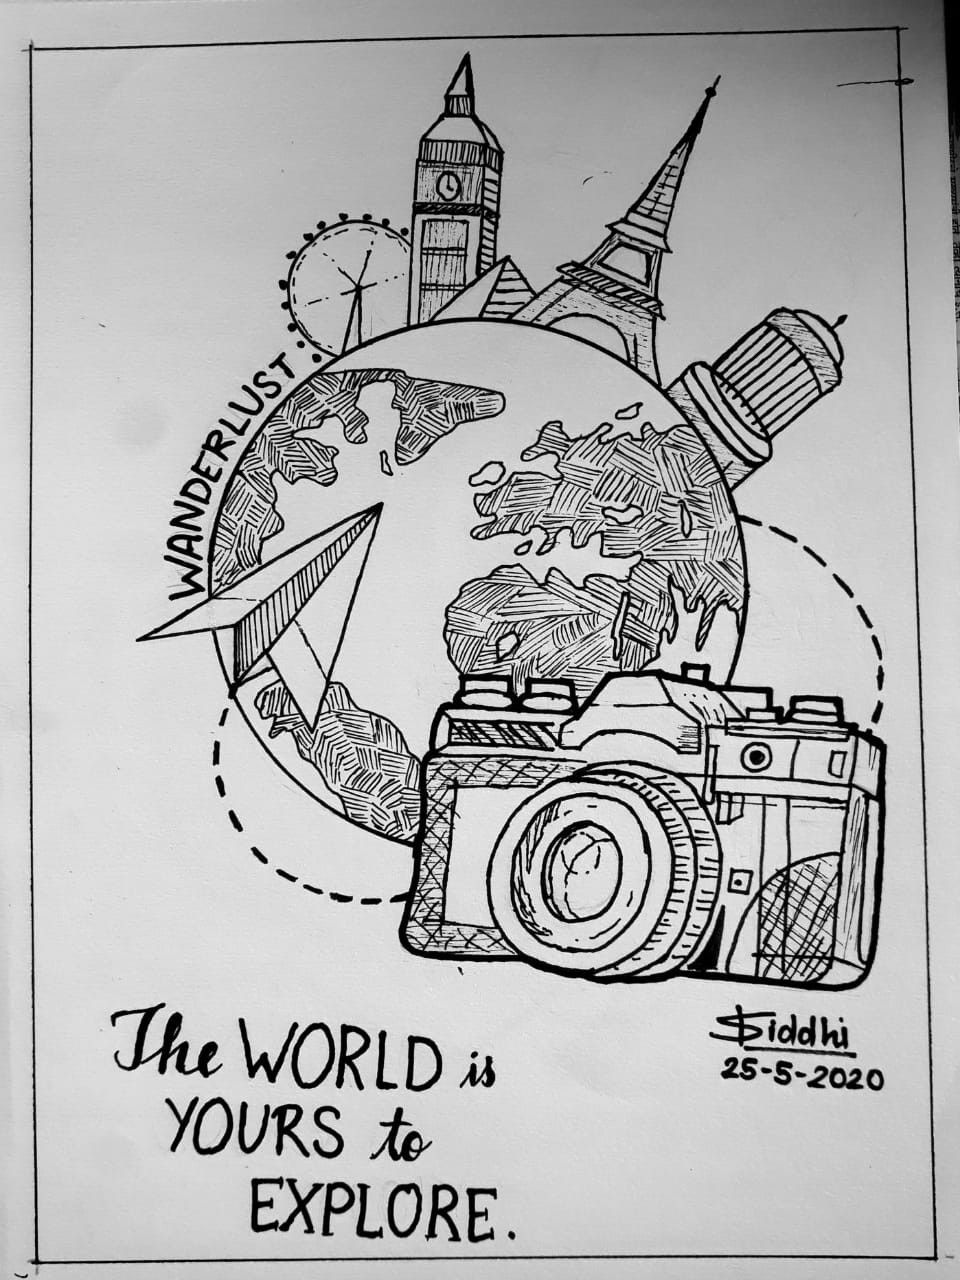 WANDERLUST
The WORLD is
YOURS to
EXPLORE.
Siddhi
25-5-2020